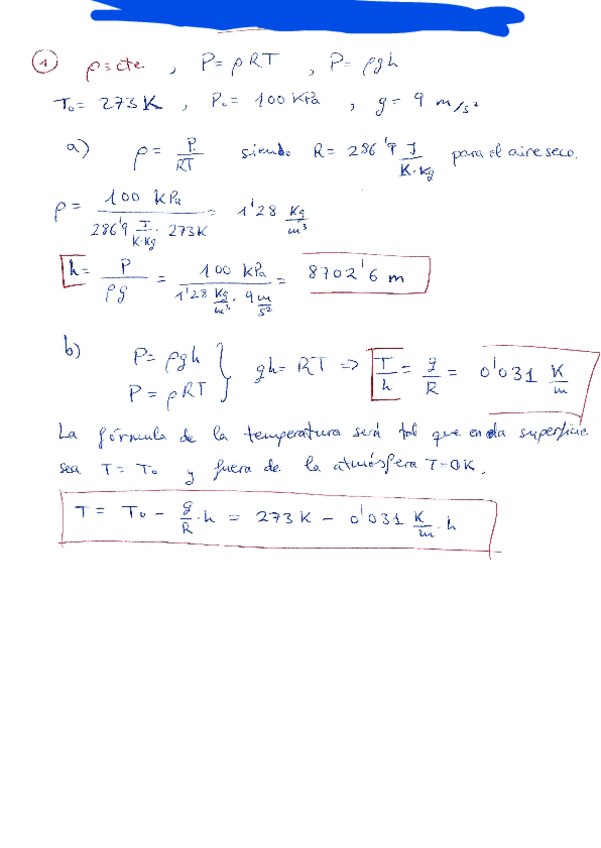 1 ρ=cte. , P=ρRT , P=ρgh
T₀=273K , P₀=100KPa , g=9 m/s²
a) ρ= P/RT siendo R=286'9 J/K·Kg para el aire seco.
ρ= 100 KPa / 286'9 J/K·Kg · 273K = 1'28 Kg/m³
h= P/ρg = 100 KPa / 1'28 Kg/m³ · 9 m/s² = 8702'6 m
b) P=ρgh
P=ρRT } gh=RT => T/h = g/R = 0'031 K/m
La fórmula de la temperatura será tal que en la superficie
sea T=T₀ y fuera de la atmósfera T=0K.
T= T₀ - g/R·h = 273K - 0'031 K/m·h